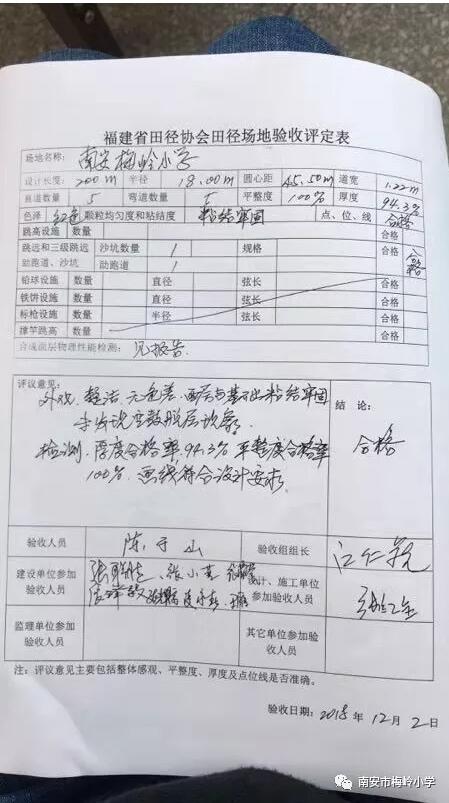 福建省田径协会田径场地验收评定表
场地名称： 南安梅岭小学
设计长度： 200m 半径 18.00m 圆心距 45.50m 道宽 1.22m
直道数量 5 弯道数量 5 平整度 100% 厚度 94.3%
色泽 红色 颗粒均匀度和粘结度 粘结牢固 点、位、线 合格
跳高设施 数量 合格
跳远和三级跳远 沙坑数量 1 规格 合格
助跑道、沙坑 助跑道 1 合格
铅球设施 数量 直径 弦长 合格
铁饼设施 数量 直径 弦长 合格
标枪设施 数量 半径 弦长 合格
撑竿跳高 数量 合格
合成面层物理性能检测： 见报告
评议意见：
外观：整洁、无色差、面层与基础粘结牢固
未发现空鼓脱层现象
检测：厚度合格率94.3% 平整度合格率
100% 画线符合设计要求
结 论：
合格
验收人员 陈于山 验收组组长
建设单位参加验收人员 设计、施工单位参加验收人员
监理单位参加验收人员 其它单位参加验收人员
注：评议意见主要包括整体感观、平整度、厚度及点位线是否准确。
验收日期：2018年12月2日
南安市梅岭小学